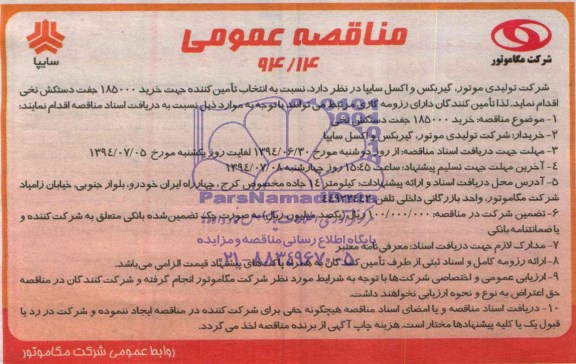 مناقصه عمومی
۹۴/۱۴
شرکت مگاموتور
سایپا
شرکت تولیدی موتور، گیربکس و اکسل سایپا در نظر دارد، نسبت به انتخاب تأمین کننده جهت خرید ۱۸۵۰۰۰ جفت دستکش نخی
اقدام نماید. لذا تأمین کنندگان دارای رزومه کاری مرتبط می توانند با توجه به موارد ذیل نسبت به دریافت اسناد مناقصه اقدام نمایند:
۱- موضوع مناقصه: خرید ۱۸۵۰۰۰ جفت دستکش نخی
۲- خریدار: شرکت تولیدی موتور، گیربکس و اکسل سایپا
۳- مهلت جهت دریافت اسناد مناقصه: از روز دوشنبه مورخ ۱۳۹۴/۰۶/۳۰ لغایت روز یکشنبه مورخ ۱۳۹۴/۰۷/۰۵
۴- آخرین مهلت جهت تسلیم پیشنهاد: ساعت ۱۵:۴۵ روز چهارشنبه ۱۳۹۴/۰۷/۰۸
۵- آدرس محل دریافت اسناد و ارائه پیشنهادات: کیلومتر ۱۴ جاده مخصوص کرج، چهارراه ایران خودرو، بلوار جنوبی، خیابان زامیاد
شرکت مگاموتور، واحد بازرگانی داخلی تلفن:
۶- تضمین شرکت در مناقصه: ۱۰۰/۰۰۰/۰۰۰ ریال (یکصد میلیون ریال) به صورت چک تضمین شده بانکی متعلق به شرکت کننده و
یا ضمانتنامه بانکی
۷- مدارک لازم جهت دریافت اسناد: معرفی نامه معتبر
۸- ارائه رزومه کامل و اسناد ثبتی از طرف تأمین کنندگان به همراه پاکت های پیشنهاد قیمت الزامی می باشد.
۹- ارزیابی عمومی و اختصاصی شرکت ها با توجه به شرایط مورد نظر شرکت مگاموتور انجام گرفته و شرکت کنندگان در مناقصه
حق اعتراض به نوع و نحوه ارزیابی نخواهند داشت.
۱۰- دریافت اسناد مناقصه و یا امضای اسناد مناقصه هیچگونه حقی برای شرکت کننده در مناقصه ایجاد ننموده و شرکت در رد یا
قبول یک یا کلیه پیشنهادها مختار است. هزینه چاپ آگهی از برنده مناقصه اخذ می گردد.
روابط عمومی شرکت مگاموتور
ParsNamadData
پایگاه اطلاع رسانی مناقصه و مزایده
۰۲۱-۸۸۳۴۹۶۷۰-۵